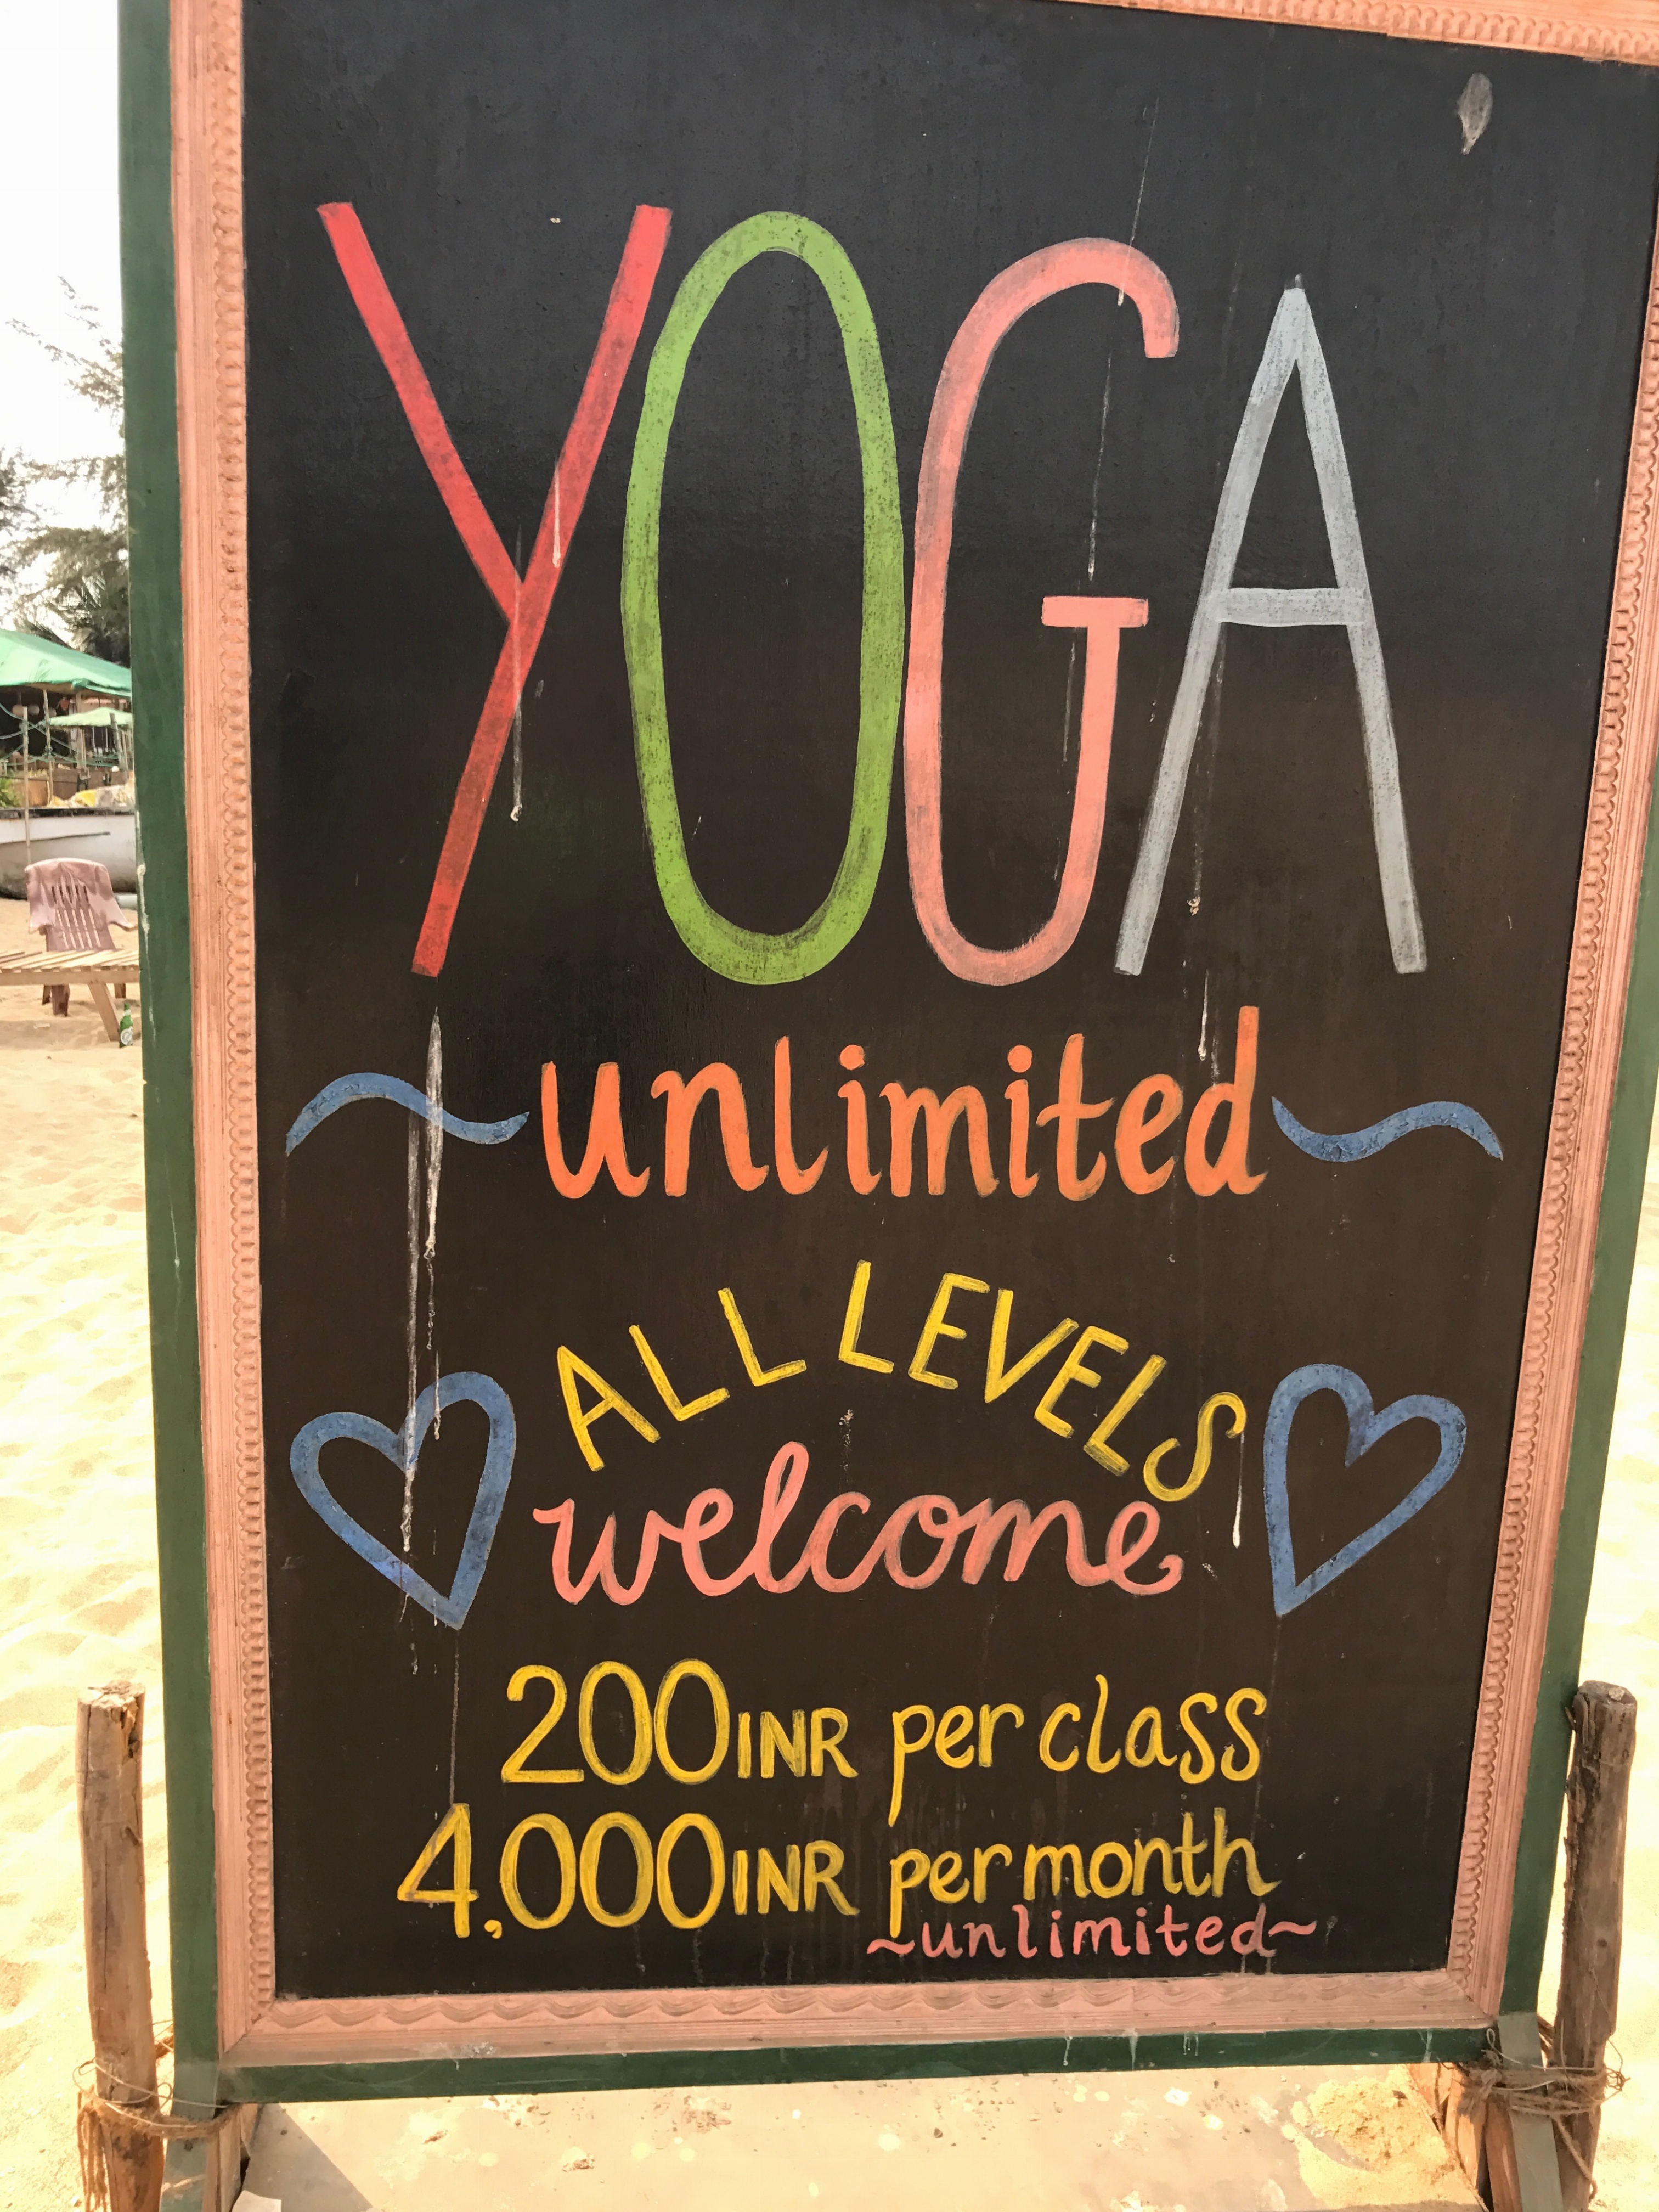 YOGA
~unlimited~
ALL LEVELS
welcome
200INR per class
4,000INR per month
~unlimited~